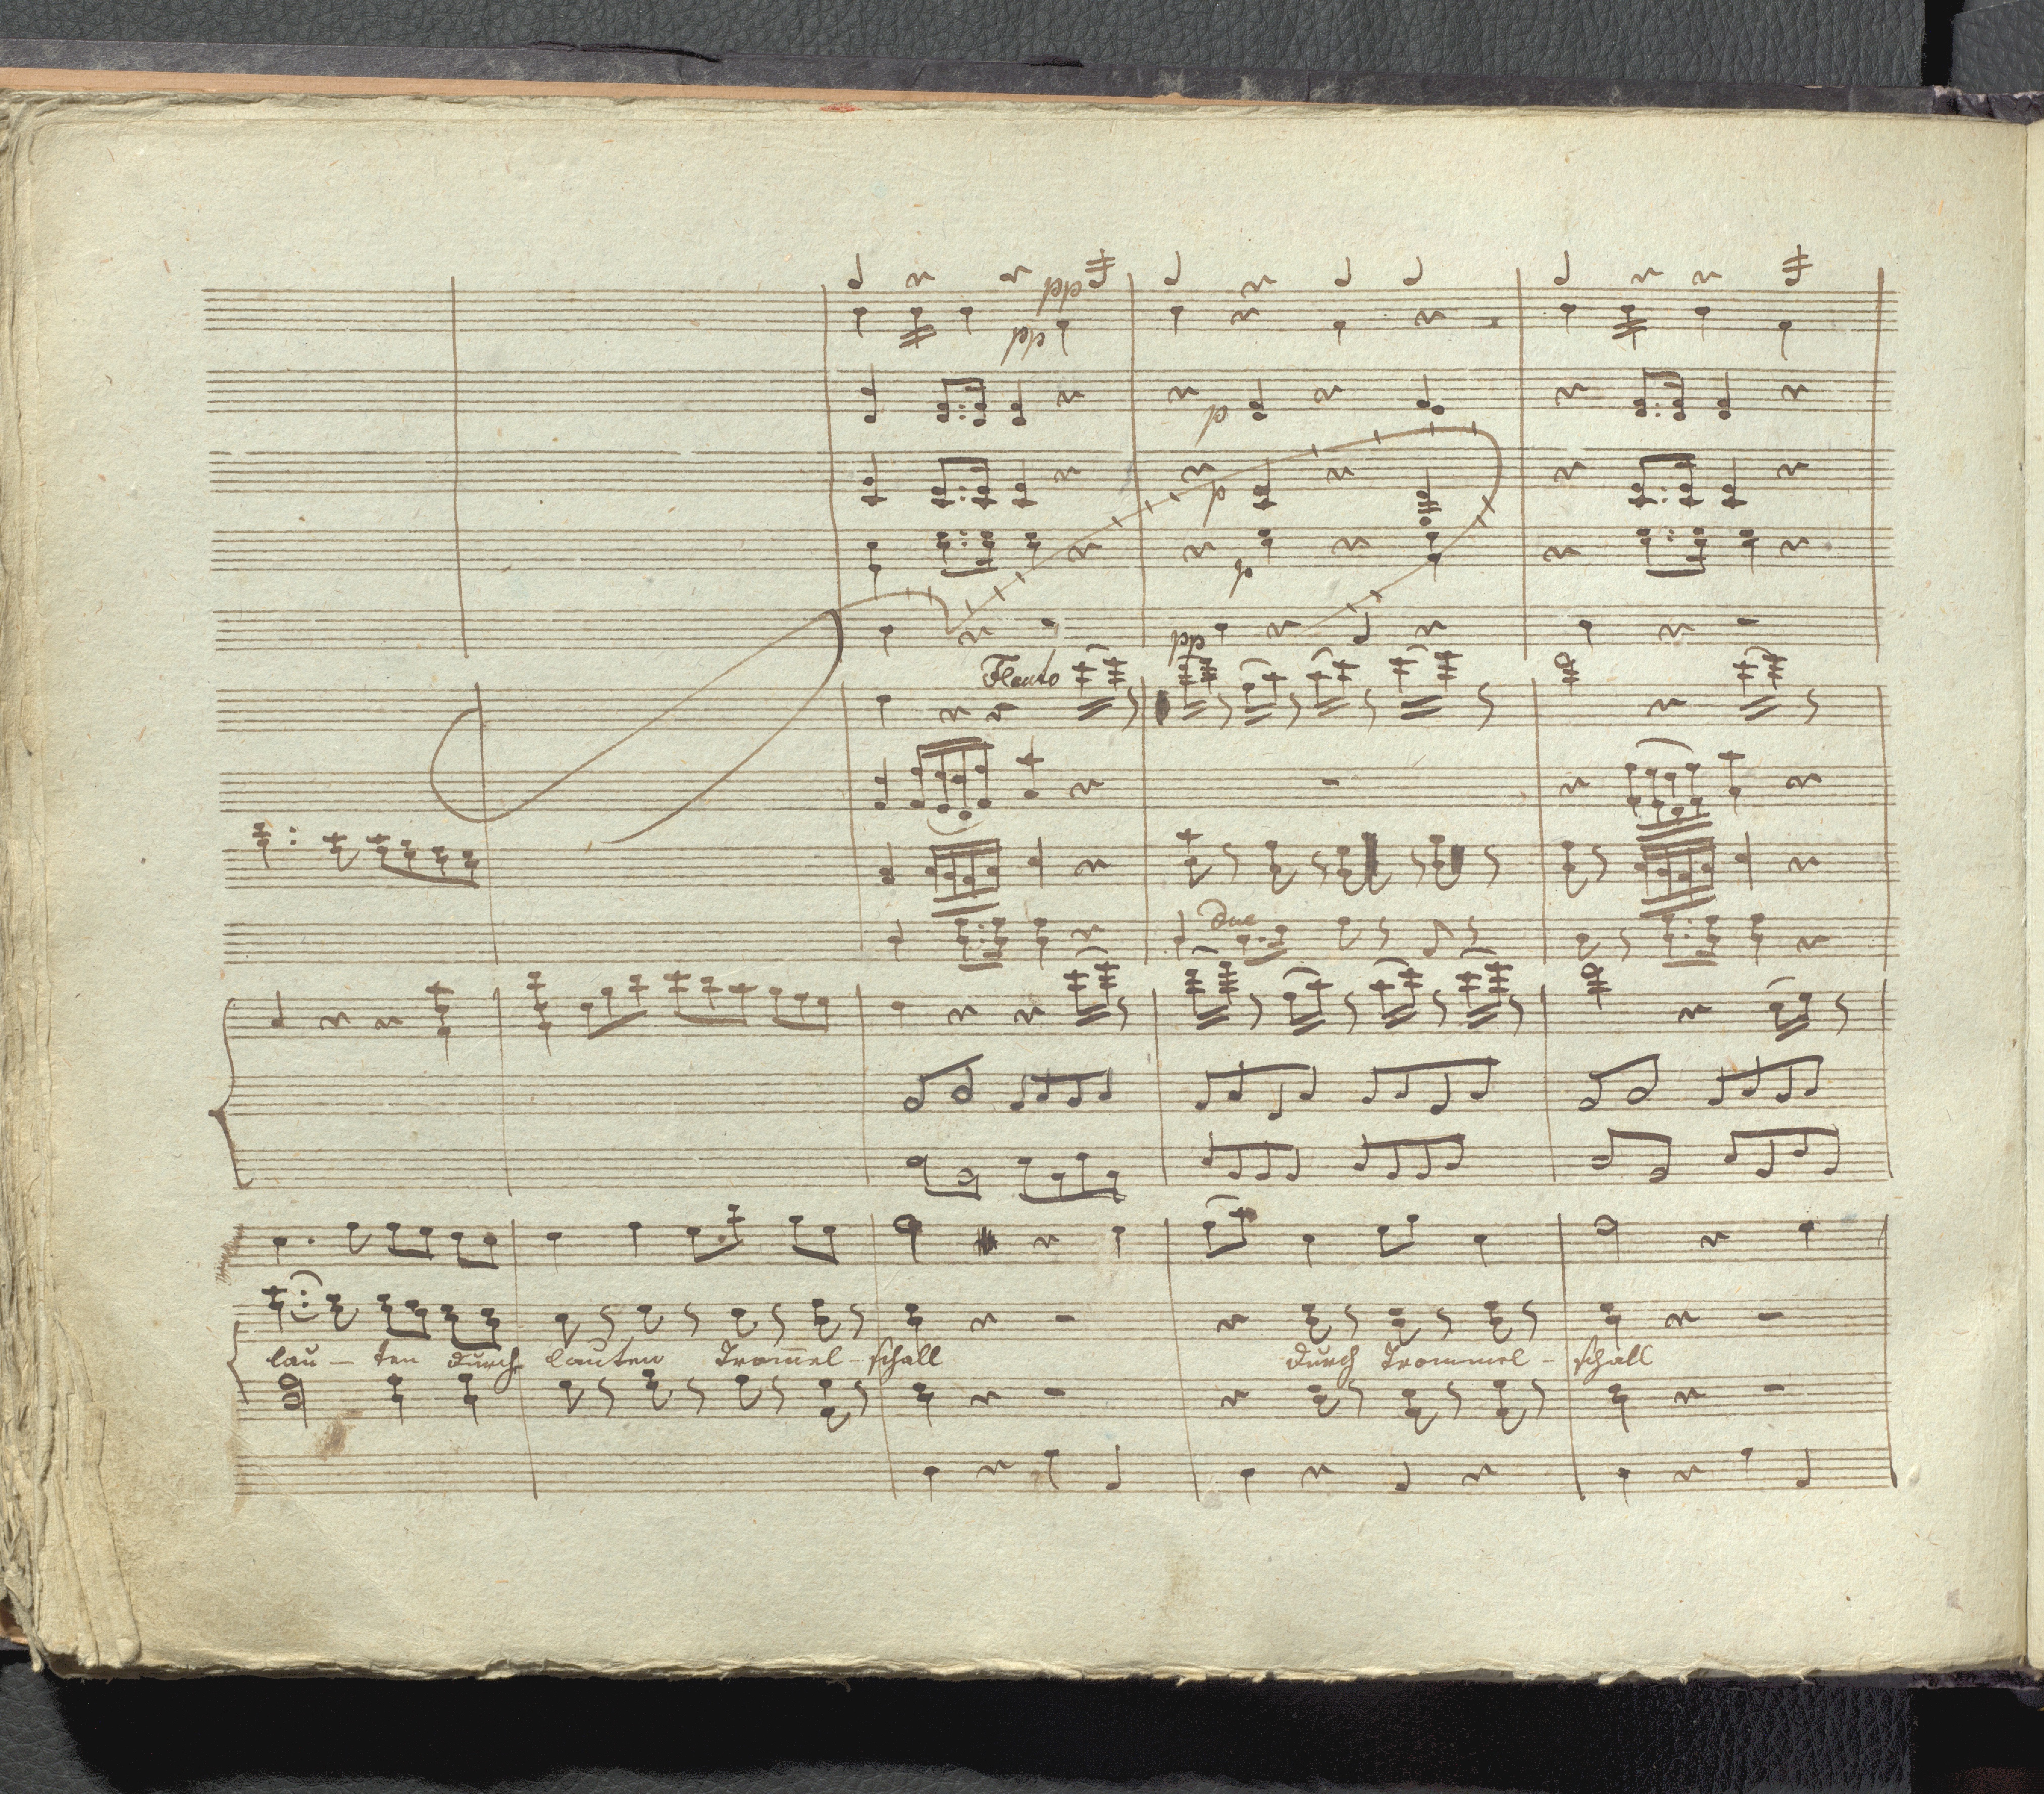 pp
pp
p
p
p
pp
Flauto
due
lau - ten durch lauten Trom̄el - schall durch Trommel - schall